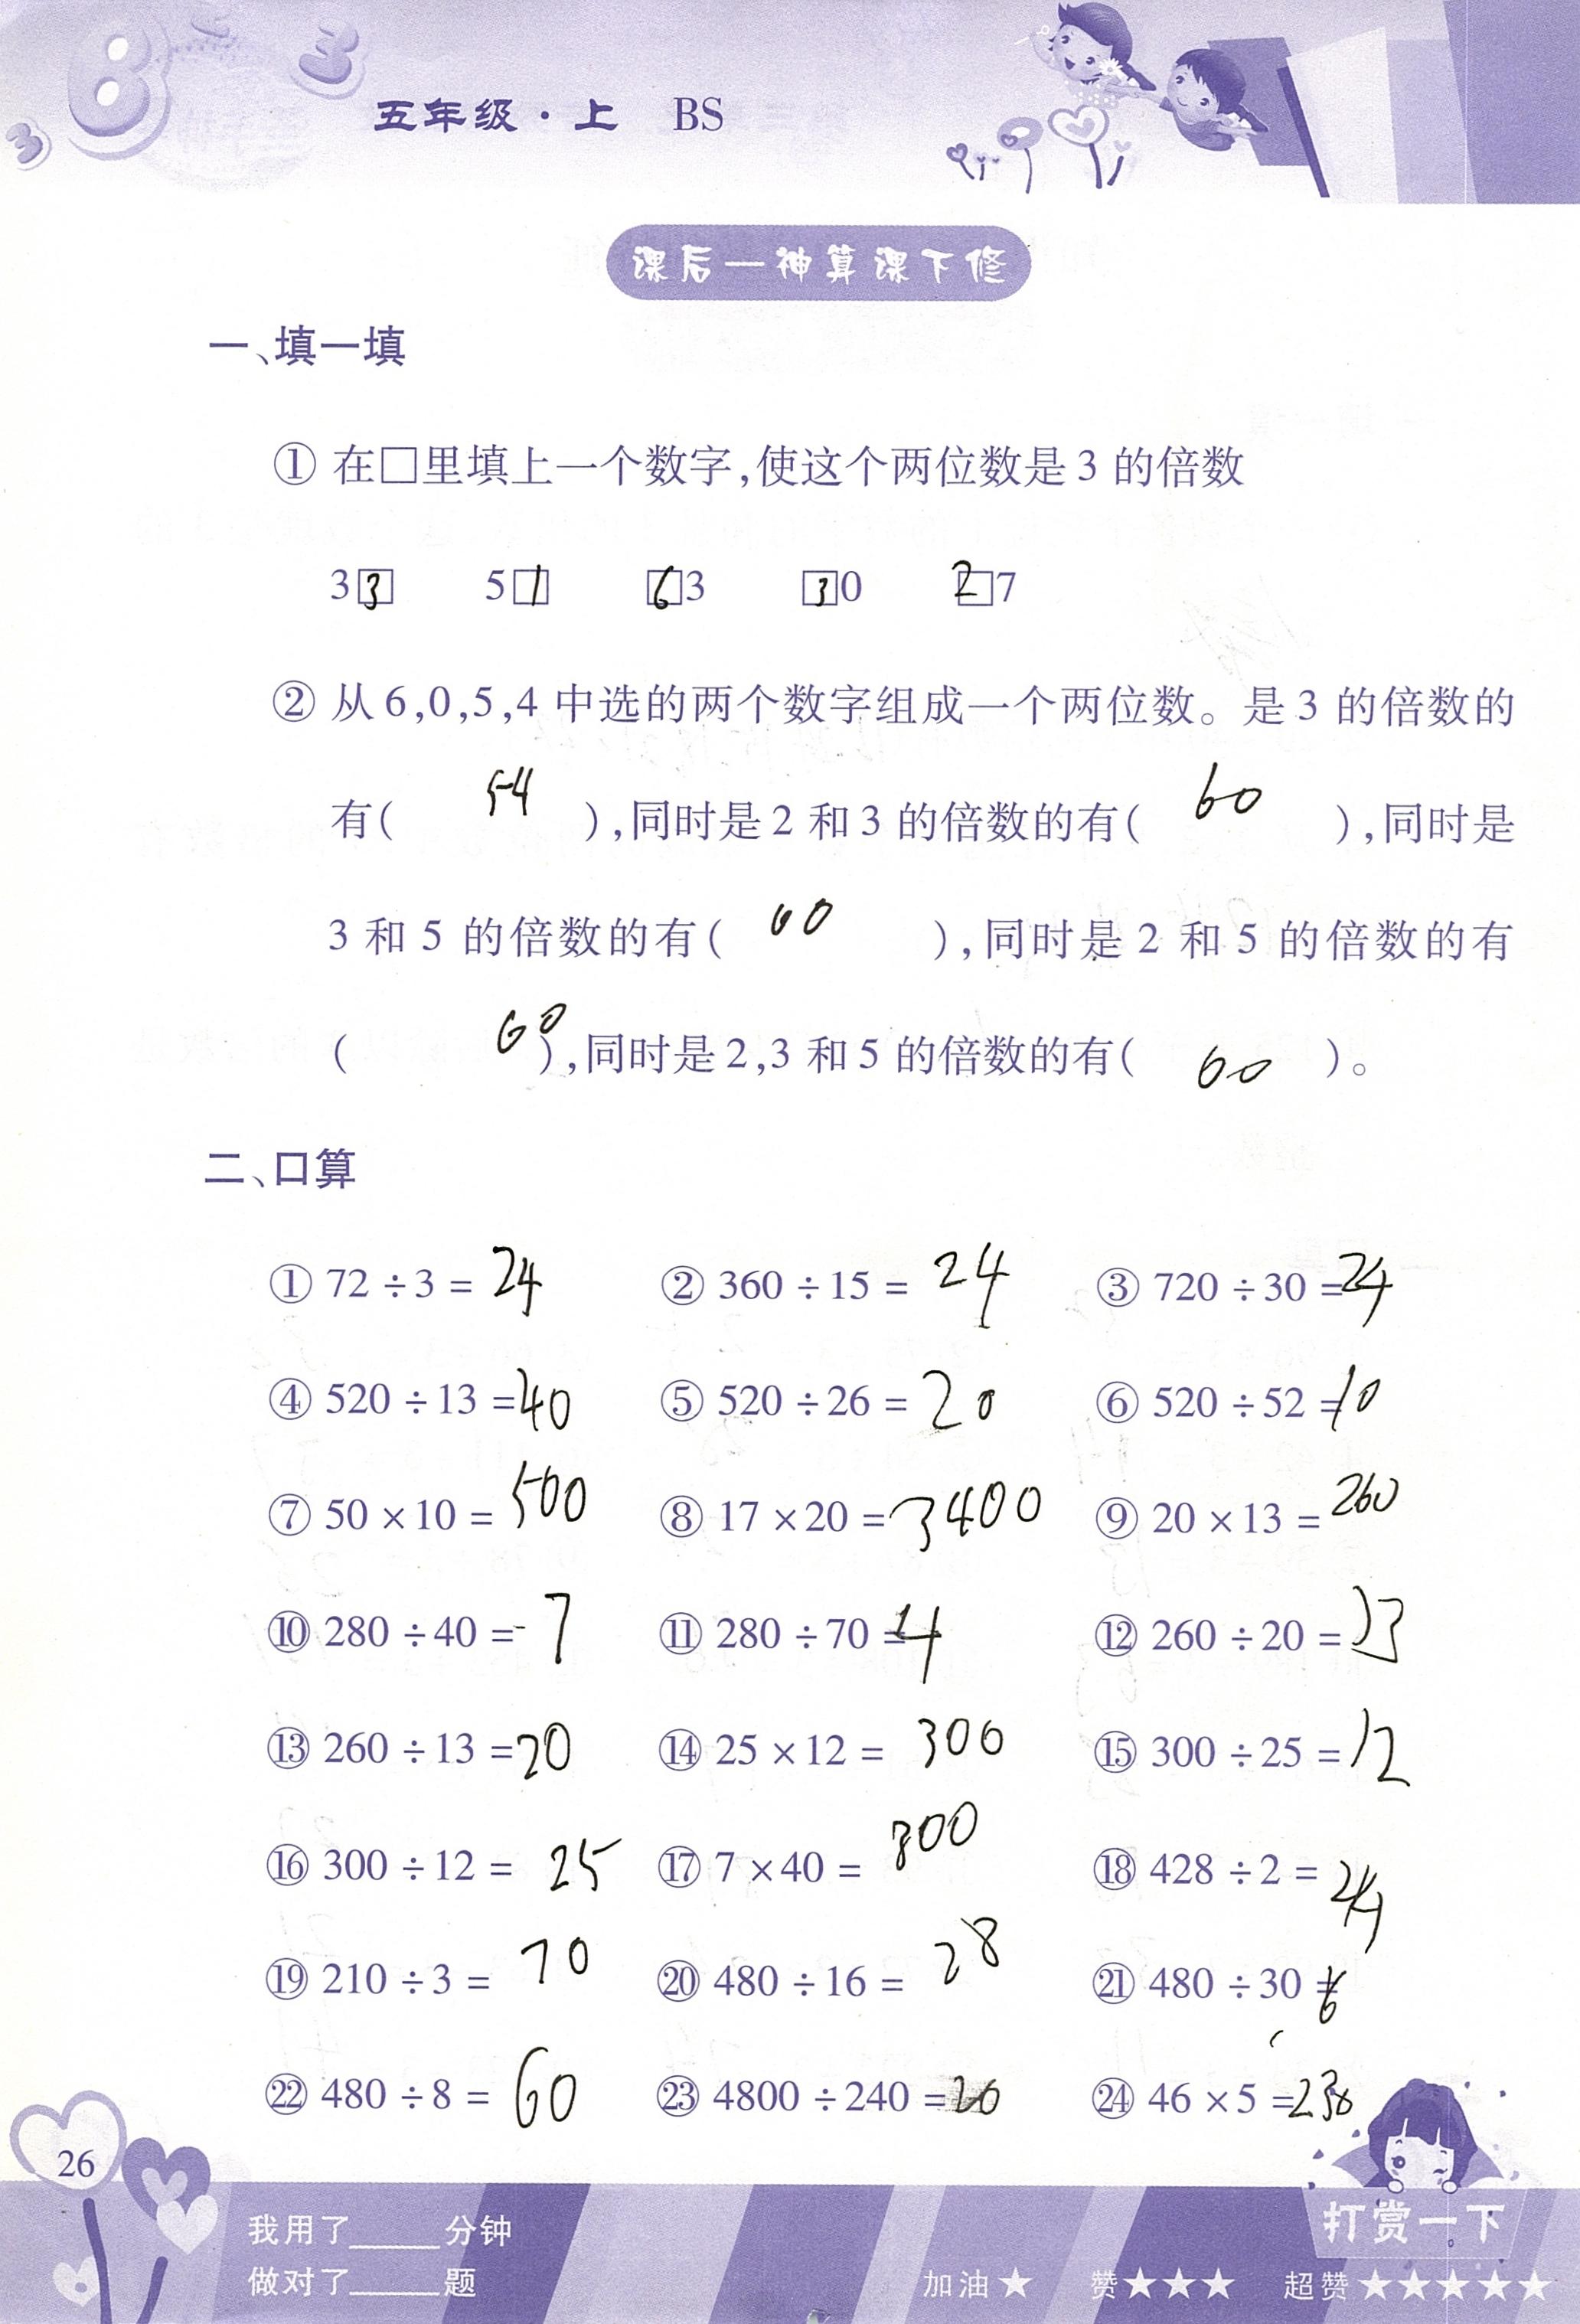 五年级·上 BS
课后一神算课下修
一、填一填
① 在□里填上一个数字,使这个两位数是3的倍数
33 51 63 30 27
② 从6,0,5,4中选的两个数字组成一个两位数。是3的倍数的
有( 54 ),同时是2和3的倍数的有( 60 ),同时是
3和5的倍数的有( 60 ),同时是2和5的倍数的有
( 60 ),同时是2,3和5的倍数的有( 60 )。
二、口算
① 72÷3= 24 ② 360÷15= 24 ③ 720÷30= 24
④ 520÷13= 40 ⑤ 520÷26= 20 ⑥ 520÷52= 10
⑦ 50×10= 500 ⑧ 17×20= 3400 ⑨ 20×13= 260
⑩ 280÷40= 7 ⑪ 280÷70= 4 ⑫ 260÷20= 13
⑬ 260÷13= 20 ⑭ 25×12= 300 ⑮ 300÷25= 12
⑯ 300÷12= 25 ⑰ 7×40= 800 ⑱ 428÷2=
⑲ 210÷3= 70 ⑳ 480÷16= 28 ㉑ 480÷30=
㉒ 480÷8= 60 ㉓ 4800÷240= 20 ㉔ 46×5= 230
26
我用了_____分钟
做对了_____题
打赏一下
加油★ 赞★★★ 超赞★★★★★